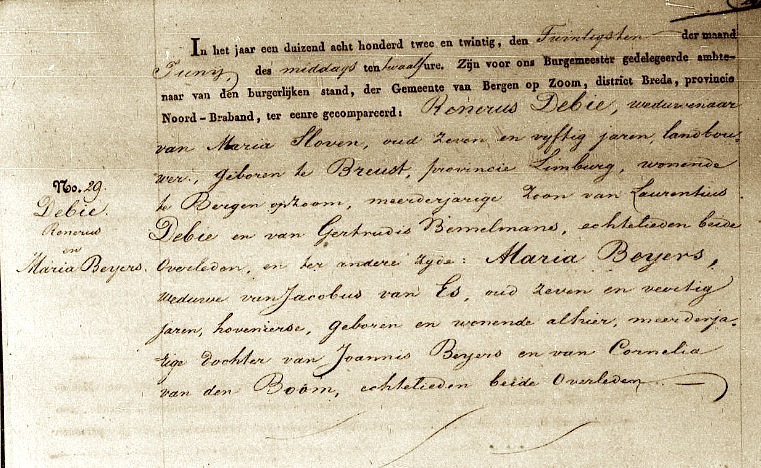 In het jaar een duizend acht honderd twee en twintig, den Twintigsten der maand
Juny, des middags ten twaalf ure. Zijn voor ons Burgemeester gedelegeerde ambte-
naar van den burgerlijken stand, der Gemeente van Bergen op Zoom, district Breda, provincie
Noord-Braband, ter eenre gecompareerd: Renerus Debie, weduwenaar
van Maria Sloven, oud zeven en vyftig jaren, landbou-
wer, geboren te Breust, provincie Limburg, wonende
te Bergen op zoom, meerderjarige Zoon van Laurentius
Debie en van Gertrudis Bemelmans, echtelieden beide
Overleden, en ter andere zyde: Maria Beyers,
weduwe van Jacobus van Es, oud zeven en veertig
jaren, hovenierse, geboren en wonende alhier, meerderja-
rige dochter van Joannis Beyers en van Cornelia
van den Boom, echtelieden beide Overleden
No. 29.
Debie
Renerus
en
Maria Beyers.